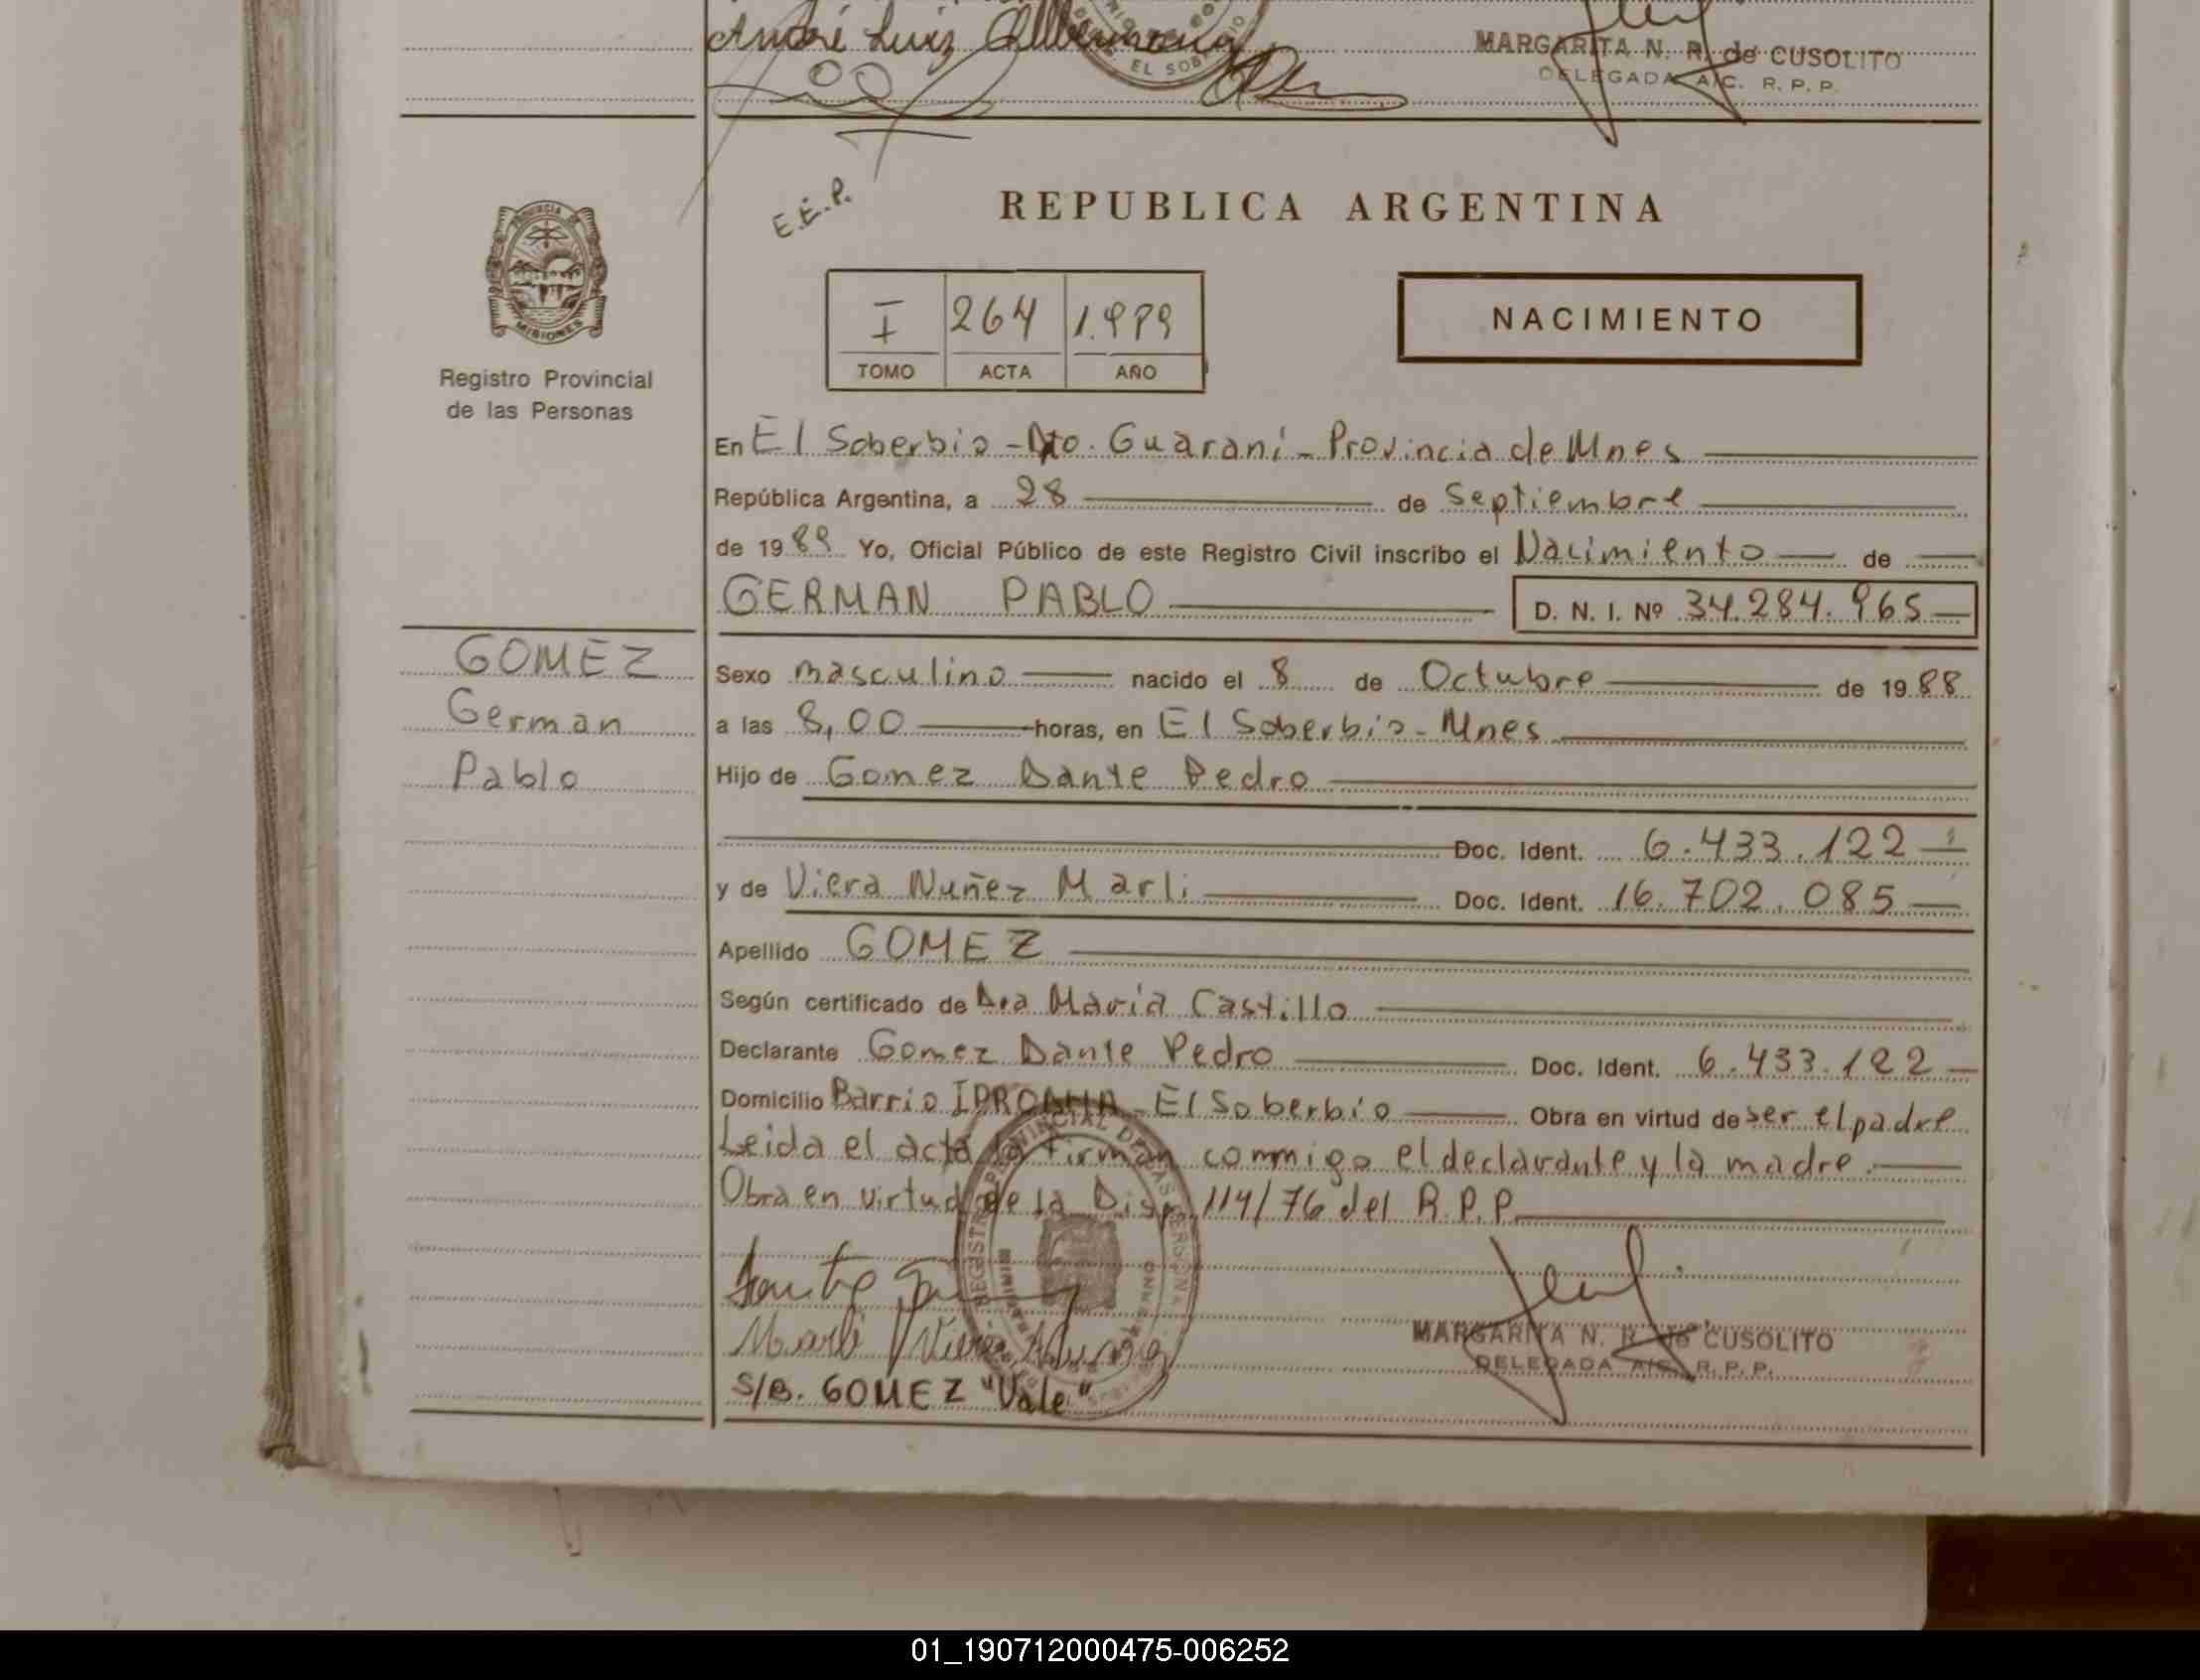 André Luiz
EL SOB
MARGARITA N. R. de CUSOLITO
DELEGADA A/C. R. P. P.
PROVINCIA DE
MISIONES
Registro Provincial
de las Personas
E.E.P.
REPUBLICA ARGENTINA
I 264 1.989
TOMO ACTA AÑO
NACIMIENTO
En El Soberbio - Dto. Guaraní - Provincia de Mnes
República Argentina, a 28 de Septiembre
de 1989 Yo, Oficial Público de este Registro Civil inscribo el Nacimiento de
GERMAN PABLO D. N. I. Nº 34.284.965
GOMEZ
German
Pablo
Sexo masculino nacido el 8 de Octubre de 1988
a las 8,00 horas, en El Soberbio - Mnes
Hijo de Gomez Dante Pedro
Doc. Ident. 6.433.122
y de Viera Nuñez Marli Doc. Ident. 16.702.085
Apellido GOMEZ
Según certificado de Dra María Castillo
Declarante Gomez Dante Pedro Doc. Ident. 6.433.122
Domicilio Barrio IPRODHA - El Soberbio Obra en virtud de ser el padre
Leida el acta la firman conmigo el declarante y la madre.
Obra en virtud de la Disp. 114/76 del R.P.P.
REGISTRO PROVINCIAL DE LAS PERSONAS
Marli Viera Nuñez
S/B. GOMEZ "Vale"
MARGARITA N. R. de CUSOLITO
DELEGADA A/C. R. P. P.
01_190712000475-006252